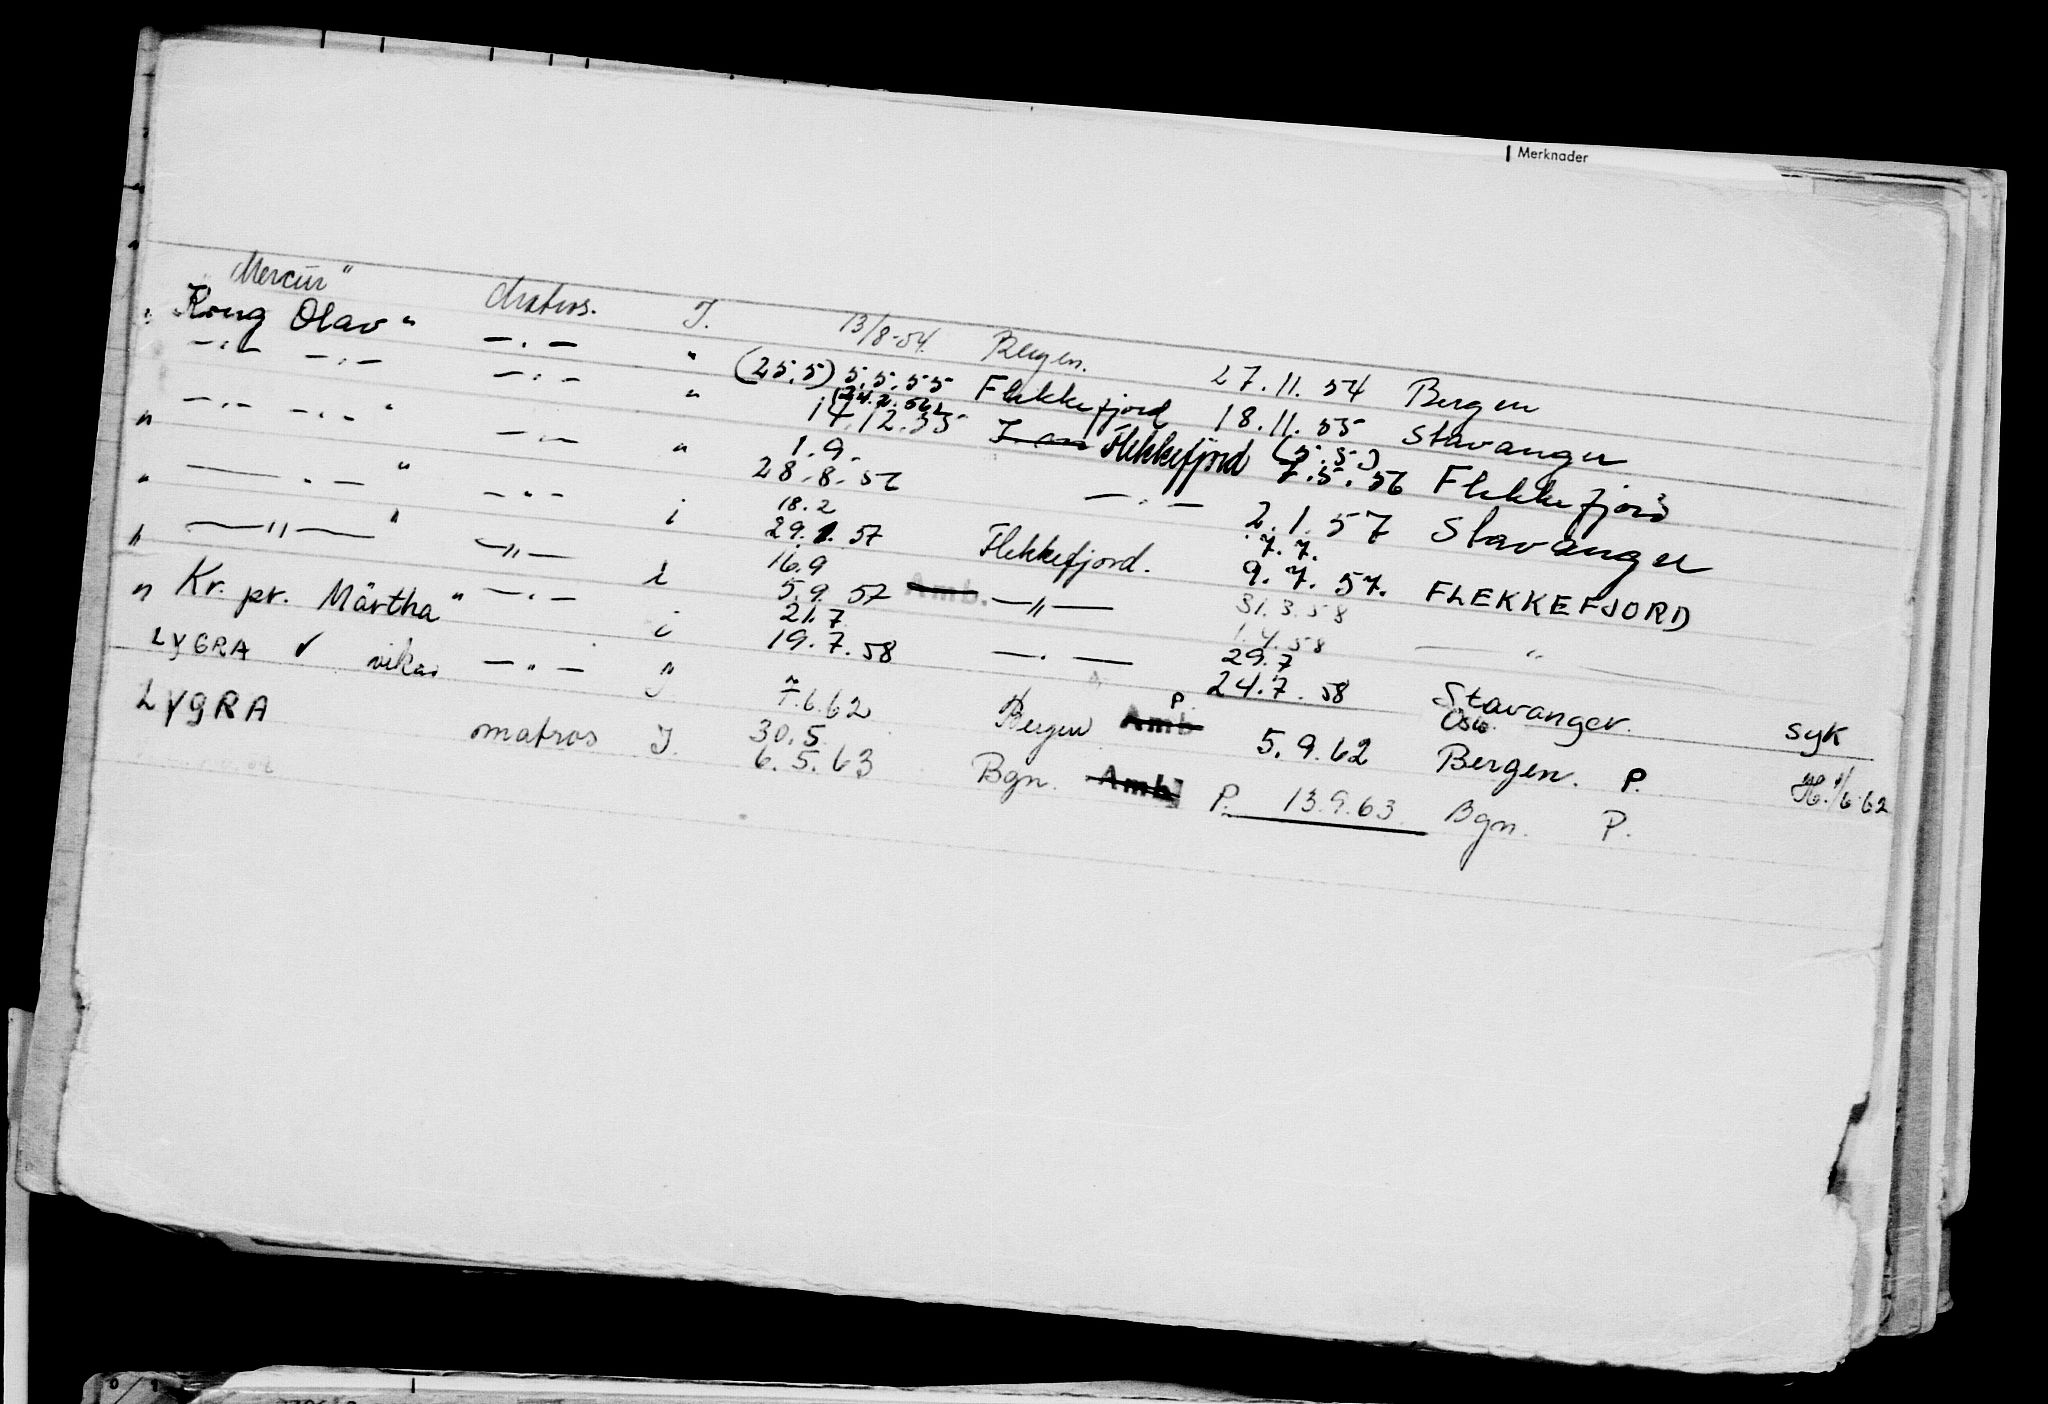 Merknader
"Mercur" Matros. I. 13/8-54. Bergen. 27.11.54 Bergen
"Kong Olav" —.— " (25.5) 5.5.55 Flekkefjord 18.11.55 Stavanger
—.— —.— —.— " 14.12.55 Flekkefjord (5.5.) 7.5.56 Flekkefjord
—.— —.— " —.— " 1.9. 28.8.56 —.— 2.1.57 Stavanger
" —— . — " —.— i 18.2 29.1.57 Flekkefjord. 7.7. 9.7.57. FLEKKEFJORD
" —"— " —"— i 16.9 5.9.57 Amb. —"— 31.3.58 1.4.58 — " —
" Kr. pr. Märtha" —.— i 21.7 19.7.58 —.— 29.7 24.7.58 Stavanger. syk
LYGRA ✓ vikar —"— I. 7.6.62 Bergen Amb P. 5.9.62 Oslo. Bergen. P. 1/6-62
LYGRA matros I. 30.5 6.5.63 Bgn. Amb P. 13.9.63. Bgn. P.